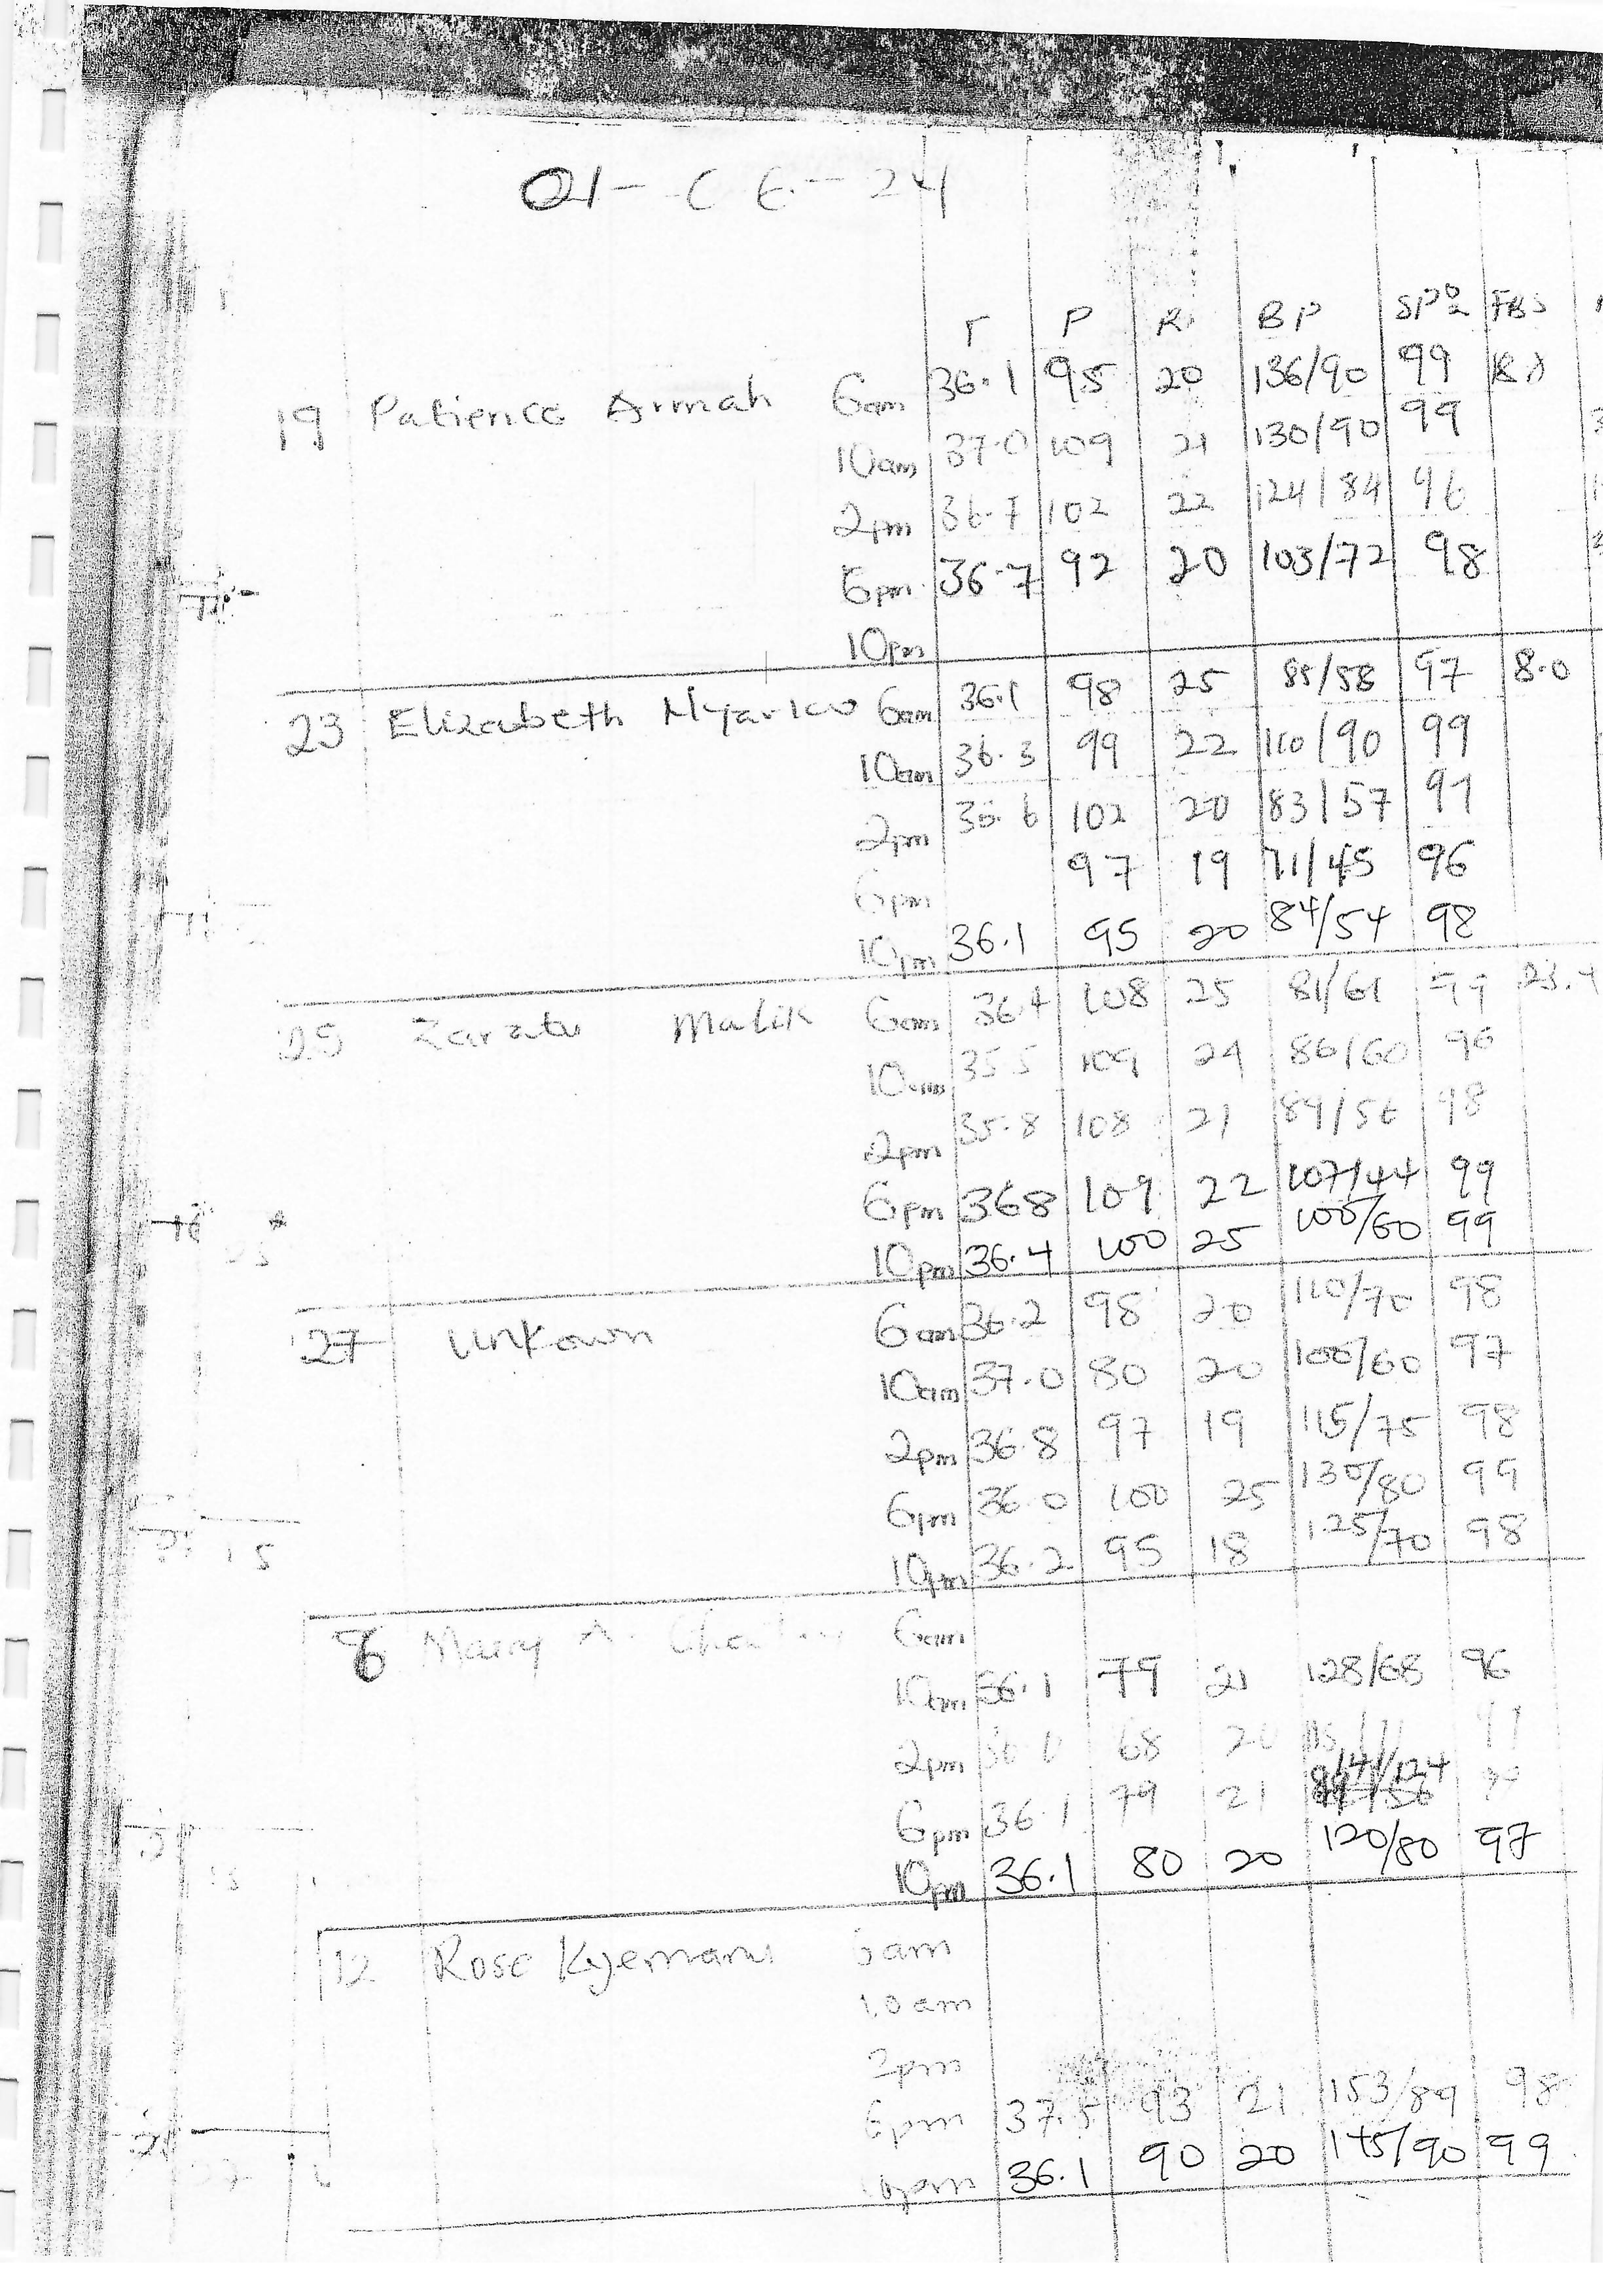 01-06-24
T P R BP SPO2 FBS
19 Patience Armah 6am 36.1 95 20 136/90 99
10am 37.0 109 21 130/90 99
2pm 36.7 102 22 124/84 96
6pm 36.7 92 20 103/72 98
10pm
23 Elizabeth Nyarko 6am 36.1 98 25 85/58 97 8.0
10am 36.3 99 22 110/90 99
2pm 36.6 102 20 83/57 97
6pm 97 19 71/45 96
10pm 36.1 95 20 84/54 98
25 Zaratu Malik 6am 36.4 108 25 81/61 99 23.4
10am 35.5 109 24 86/60 96
2pm 35.8 108 21 89/56 98
6pm 36.8 109 22 107/44 99
10pm 36.4 100 25 100/60 99
27 Unkown 6am 36.2 98 20 110/70 98
10am 37.0 80 20 100/60 97
2pm 36.8 97 19 115/75 98
6pm 36.0 100 25 130/80 99
10pm 36.2 95 18 125/70 98
8 Mary A. 6am
10am 36.1 79 21 128/68 96
2pm 68 20
6pm 36.1 79 21 141/124
10pm 36.1 80 20 120/80 97
12 Rose Kyemani 6am
10am
2pm
6pm 37.5 93 21 153/89 98
10pm 36.1 90 20 145/90 99